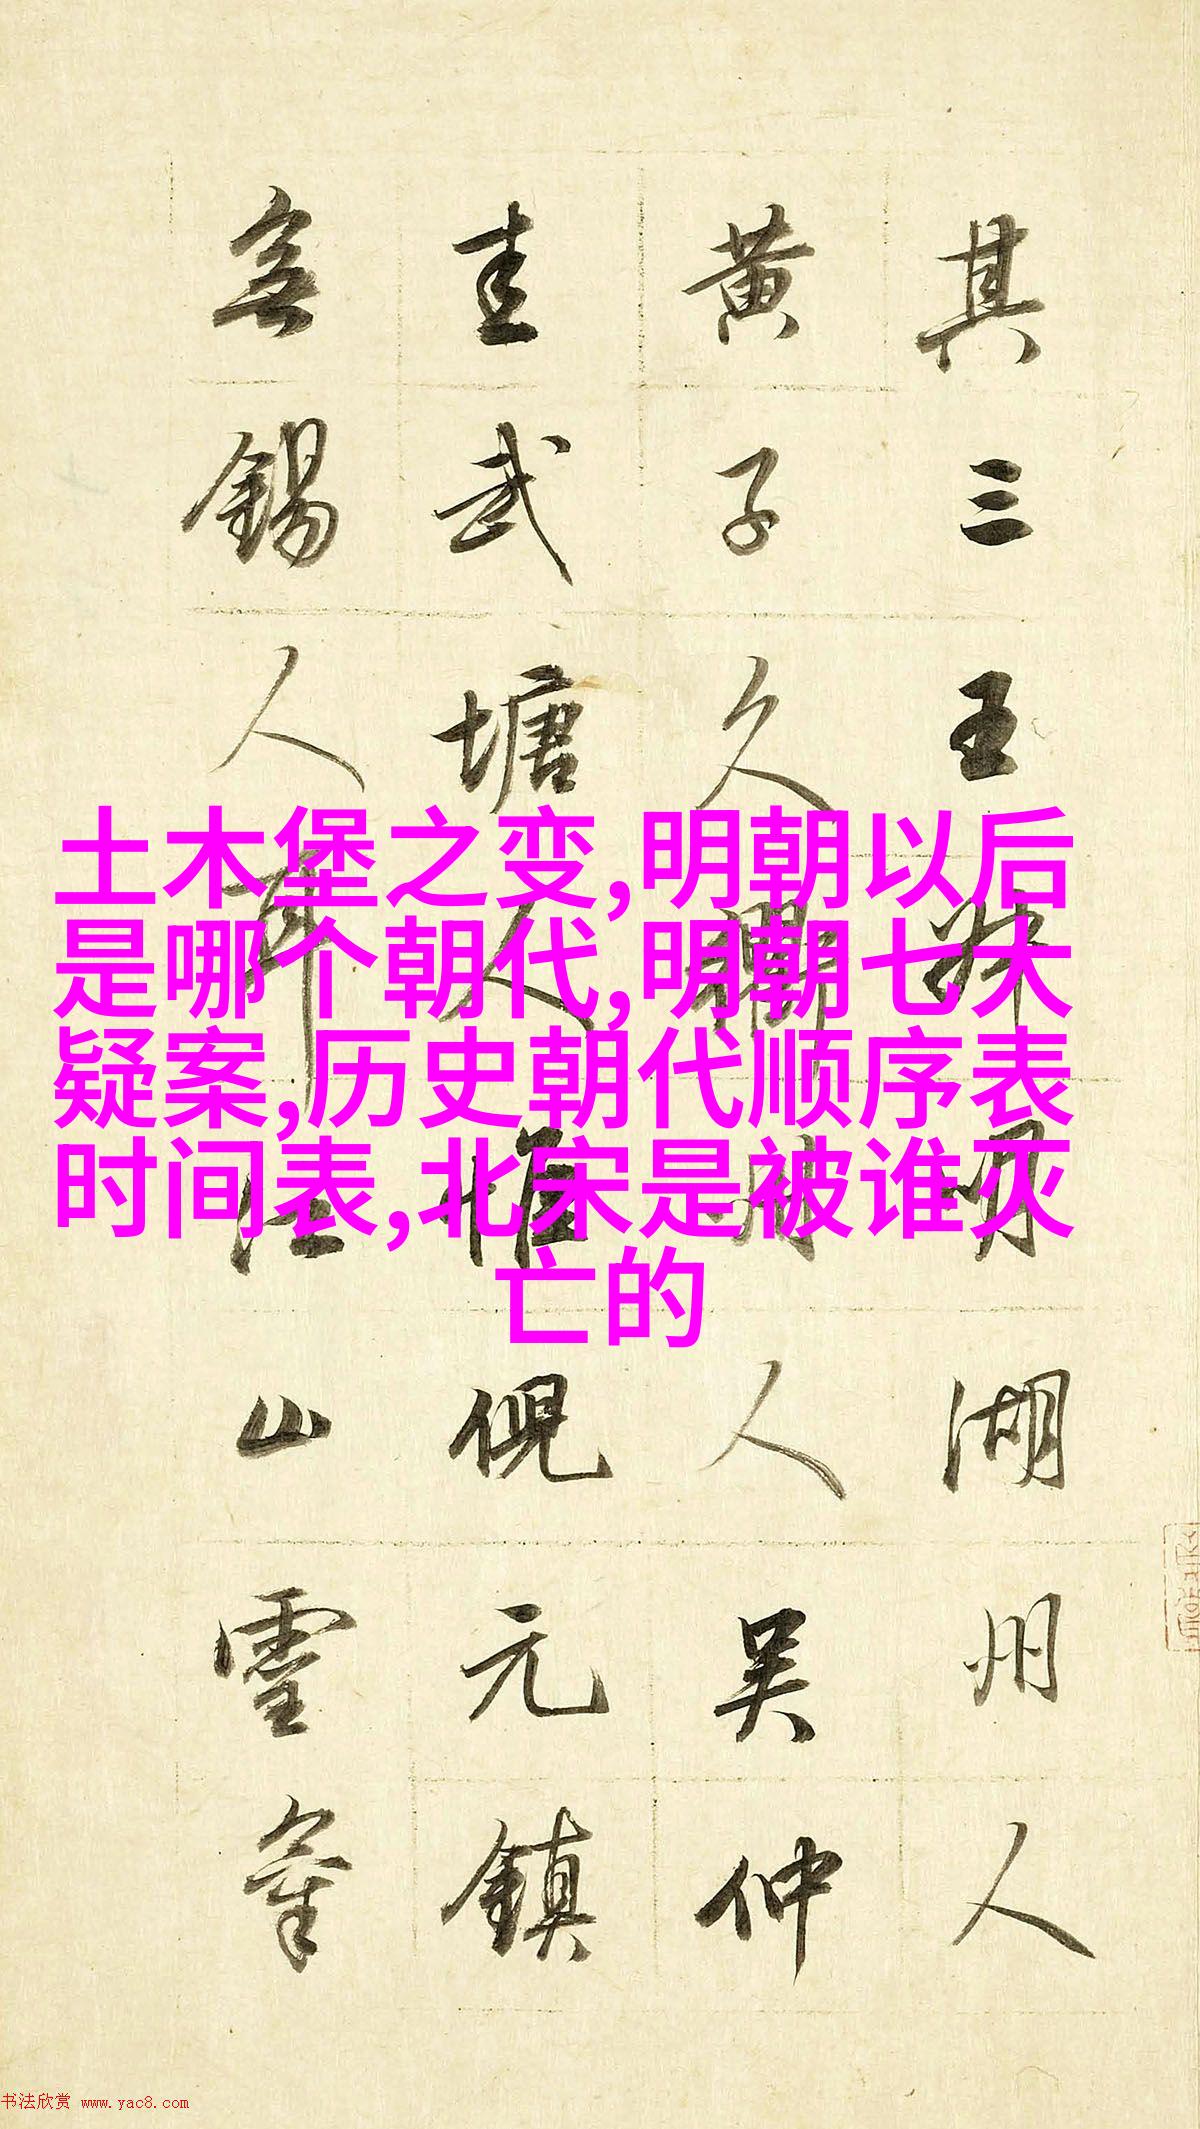 其三王叔明湖州人
黄子久衢州人吳仲
圭武塘人惟倪元鎮
無錫人耳江山靈氣
土木堡之变,明朝以后
是哪个朝代,明朝七大
疑案,历史朝代顺序表
时间表,北宋是被谁灭
亡的
书法欣赏 www.yac8.com